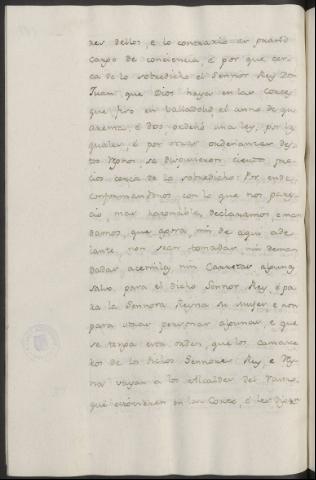 res dellos, e lo contrario es grand
cargo de conciencia, é por que cer-
ca de lo sobredicho el Sennor Rey Don
Juan que Dios haya en las Cortes
que fizo en Valladolid, el anno de qua
renta, é dos, ordenó una ley, por la
qual, é por otras ordenanzas des-
tos Reynos se dispusieron ciertos pre-
cios cerca de lo sobredicho: Por ende,
conformandonos con lo que nos pares-
ció mas razonable, declaramos, e man
damos, que agora, nin de aqui ade
lante, non sean tomadas, nin deman
dadas, acemilas, nin Carretas algunas
salvo para el dicho Sennor Rey, é pa
ra la Sennora Reyna su muger, e non
para otras personas algunas, e que
se tenga esta orden, que los camare
ros de los dichos Sennores Rey, e Rey
na vayan a los Alcaldes del Rastro,
que estovieren en la Corte, é les digan